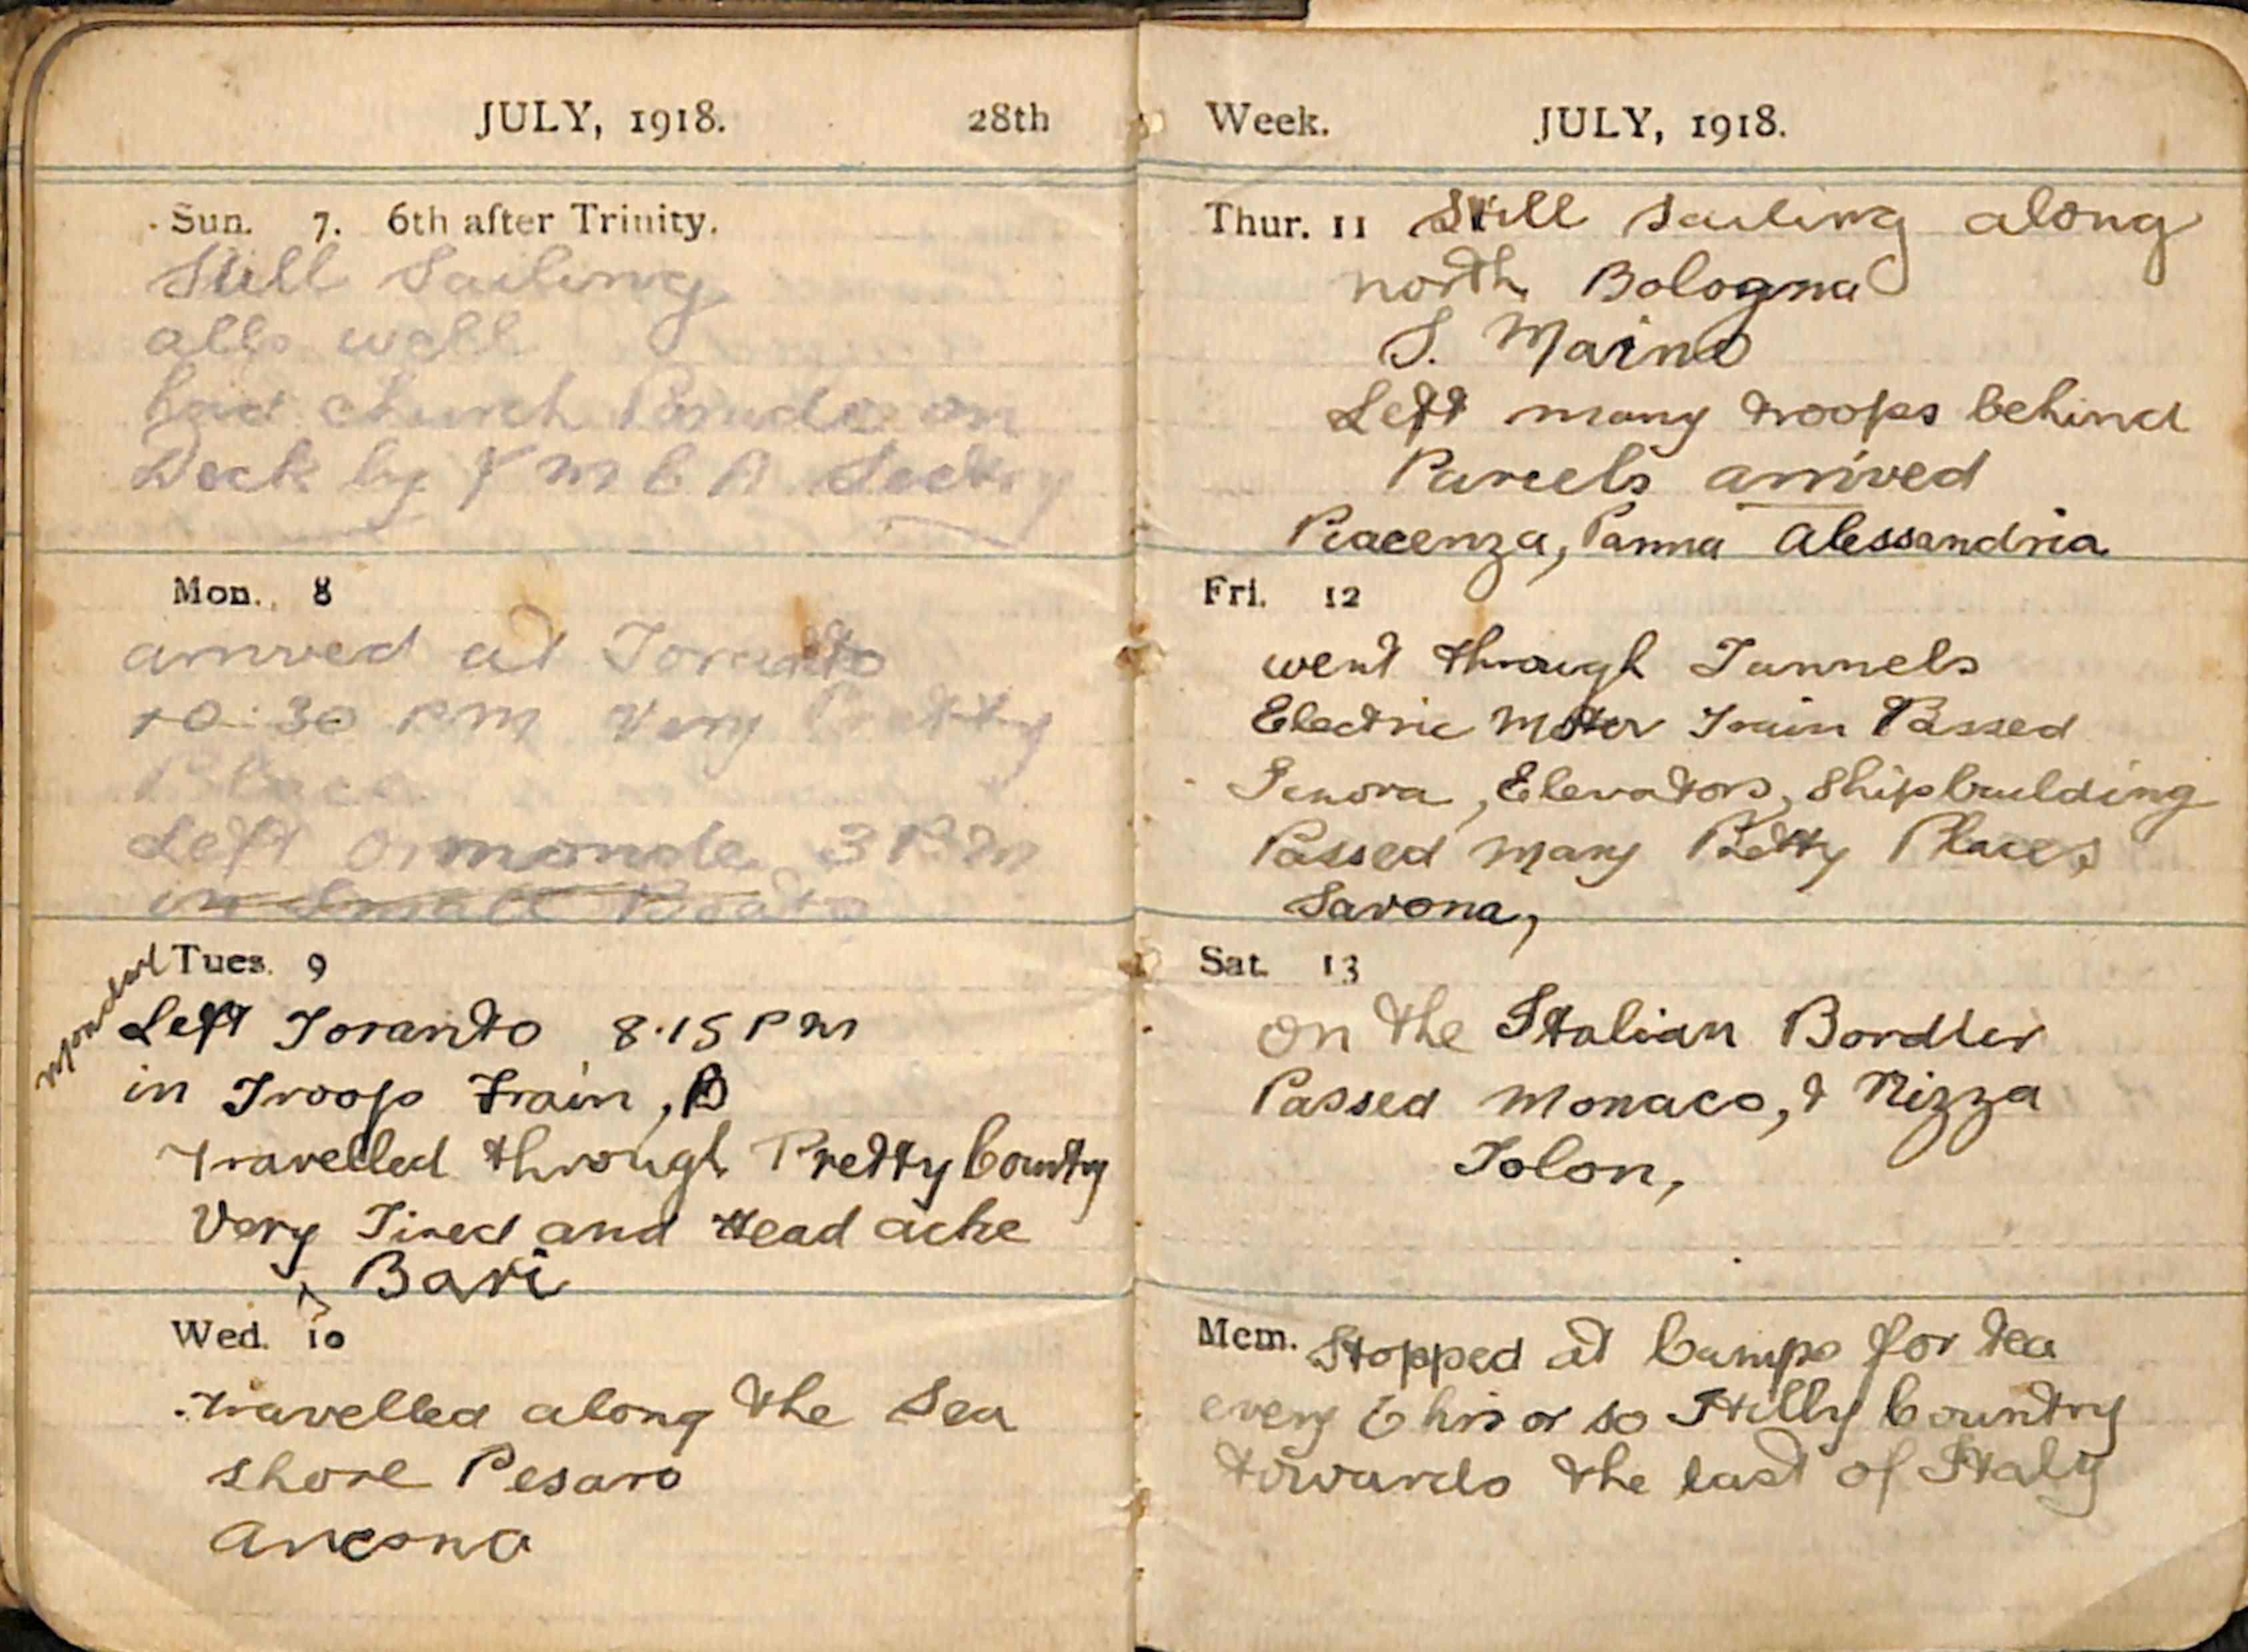 JULY, 1918. 28th
Sun. 7. 6th after Trinity.
Still Sailing
alls well
had church Parade on
Deck by Y M C A Sectry
Mon. 8
arrived at Toranto
10.30 P M Very Pretty
Place
Left Ormonde 3 P M
in Small Boats
Tues. 9
Left Toranto 8.15 P M
in Troop Train,
Travelled through Pretty Country
Very Tired and Head ache
Bari
Wed. 10
Travelled along the Sea
shore Pesaro
Ancona
Week. JULY, 1918.
Thur. 11 Still sailing along
north Bologna
S. Marino
Left many troops behind
Parcels arrived
Piacenza, Parma Alessandria
Fri. 12
went through Tunnels
Electric Moter Train Passed
Genova, Elevators, Shipbuilding
Passed many Petty Places
Savona,
Sat. 13
on the Italian Bordler
Passed Monaco, & Nizza
Tolon,
Mem. Stopped at Camps for tea
every 6 hrs or so Hilly Country
towards the last of Italy